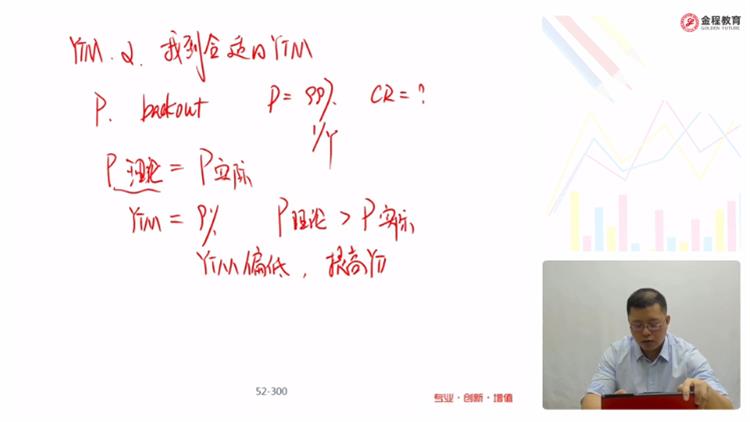 金程教育
GOLDEN FUTURE
YTM. 2. 找到合适的YTM
P. backout P= 99%. CR=?
1/Y
P理论 = P实际
YTM = 9% P理论 > P实际
YTM偏低, 提高YT
52-300
专业·创新·增值